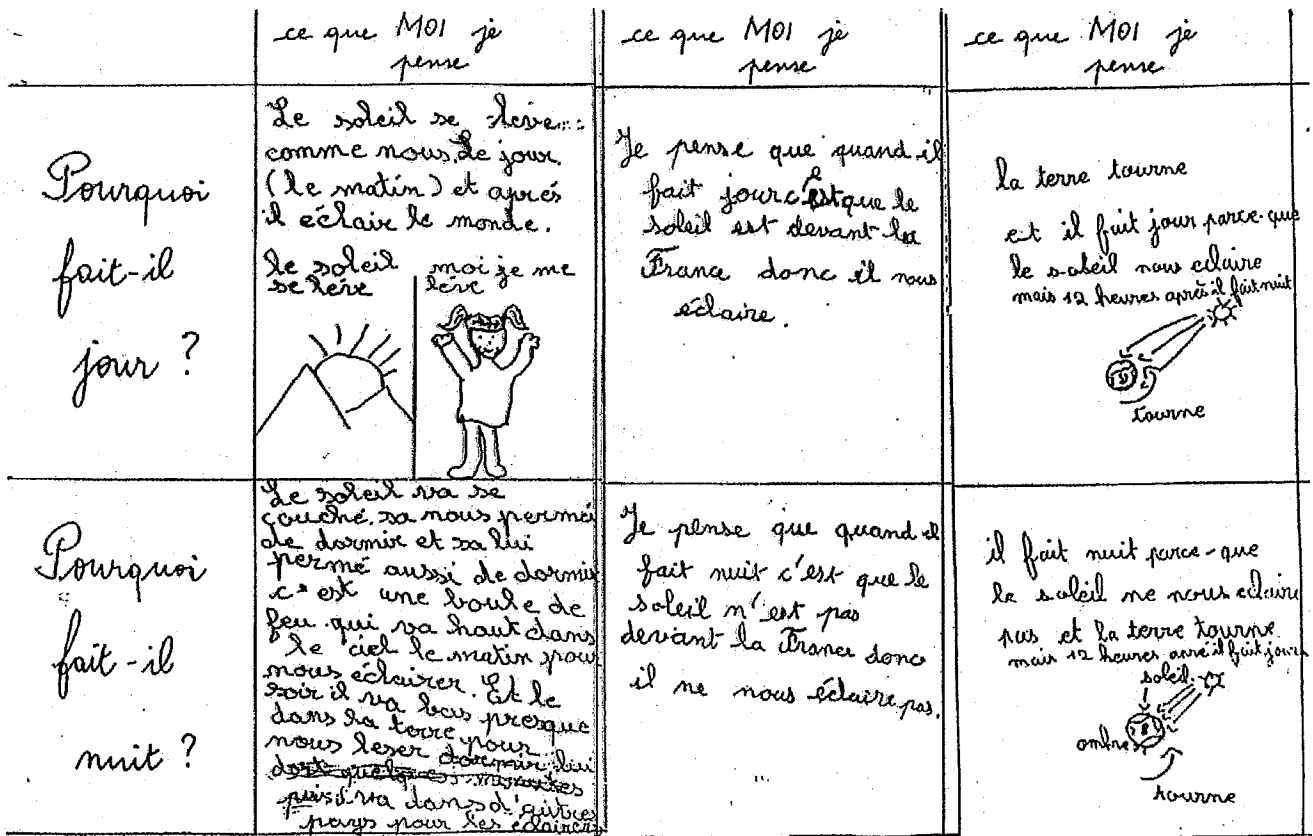 ce que MOI je
pense
ce que MOI je
pense
ce que MOI je
pense
Pourquoi
fait-il
jour ?
Le soleil se lève
comme nous. Le jour
(le matin) et aprés
il éclair le monde.
le soleil
se lève
moi je me
lève
Je pense que quand il
fait jour c'est que le
soleil est devant la
France donc il nous
éclaire.
la terre tourne
et il fait jour parce-que
le soleil nous eclaire
mais 12 heures après il fait nuit
tourne
Pourquoi
fait-il
nuit ?
Le soleil va se
couché. sa nous permé
de dormir et sa lui
permé aussi de dormir
c'est une boule de
feu qui va haut dans
le ciel le matin pour
nous éclairer. Et le
soir il va bas presque
dans la terre pour
nous leser dormir lui
dort quelques minutes
puis il va dans d'autres
pays pour les éclairer
Je pense que quand il
fait nuit c'est que le
soleil n'est pas
devant la France donc
il ne nous éclaire pas.
il fait nuit parce-que
le soleil ne nous eclaire
pas et la terre tourne
mais 12 heures aprè il fait jour
soleil
ombre
tourne